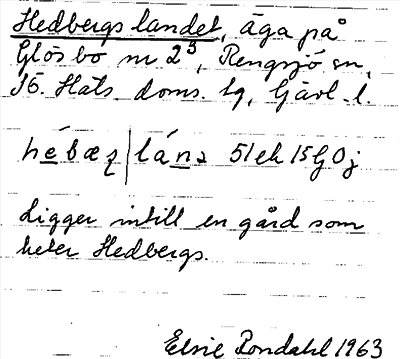 Hedbergslandet, äga på
Glösbo nr 2⁵, Rengsjö sn,
S. Häls. doms. lg, Gävl. l.
hébæș|láns 51eh 15G0j
Ligger intill en gård som
heter Hedbergs.
Elsie Rondahl 1963